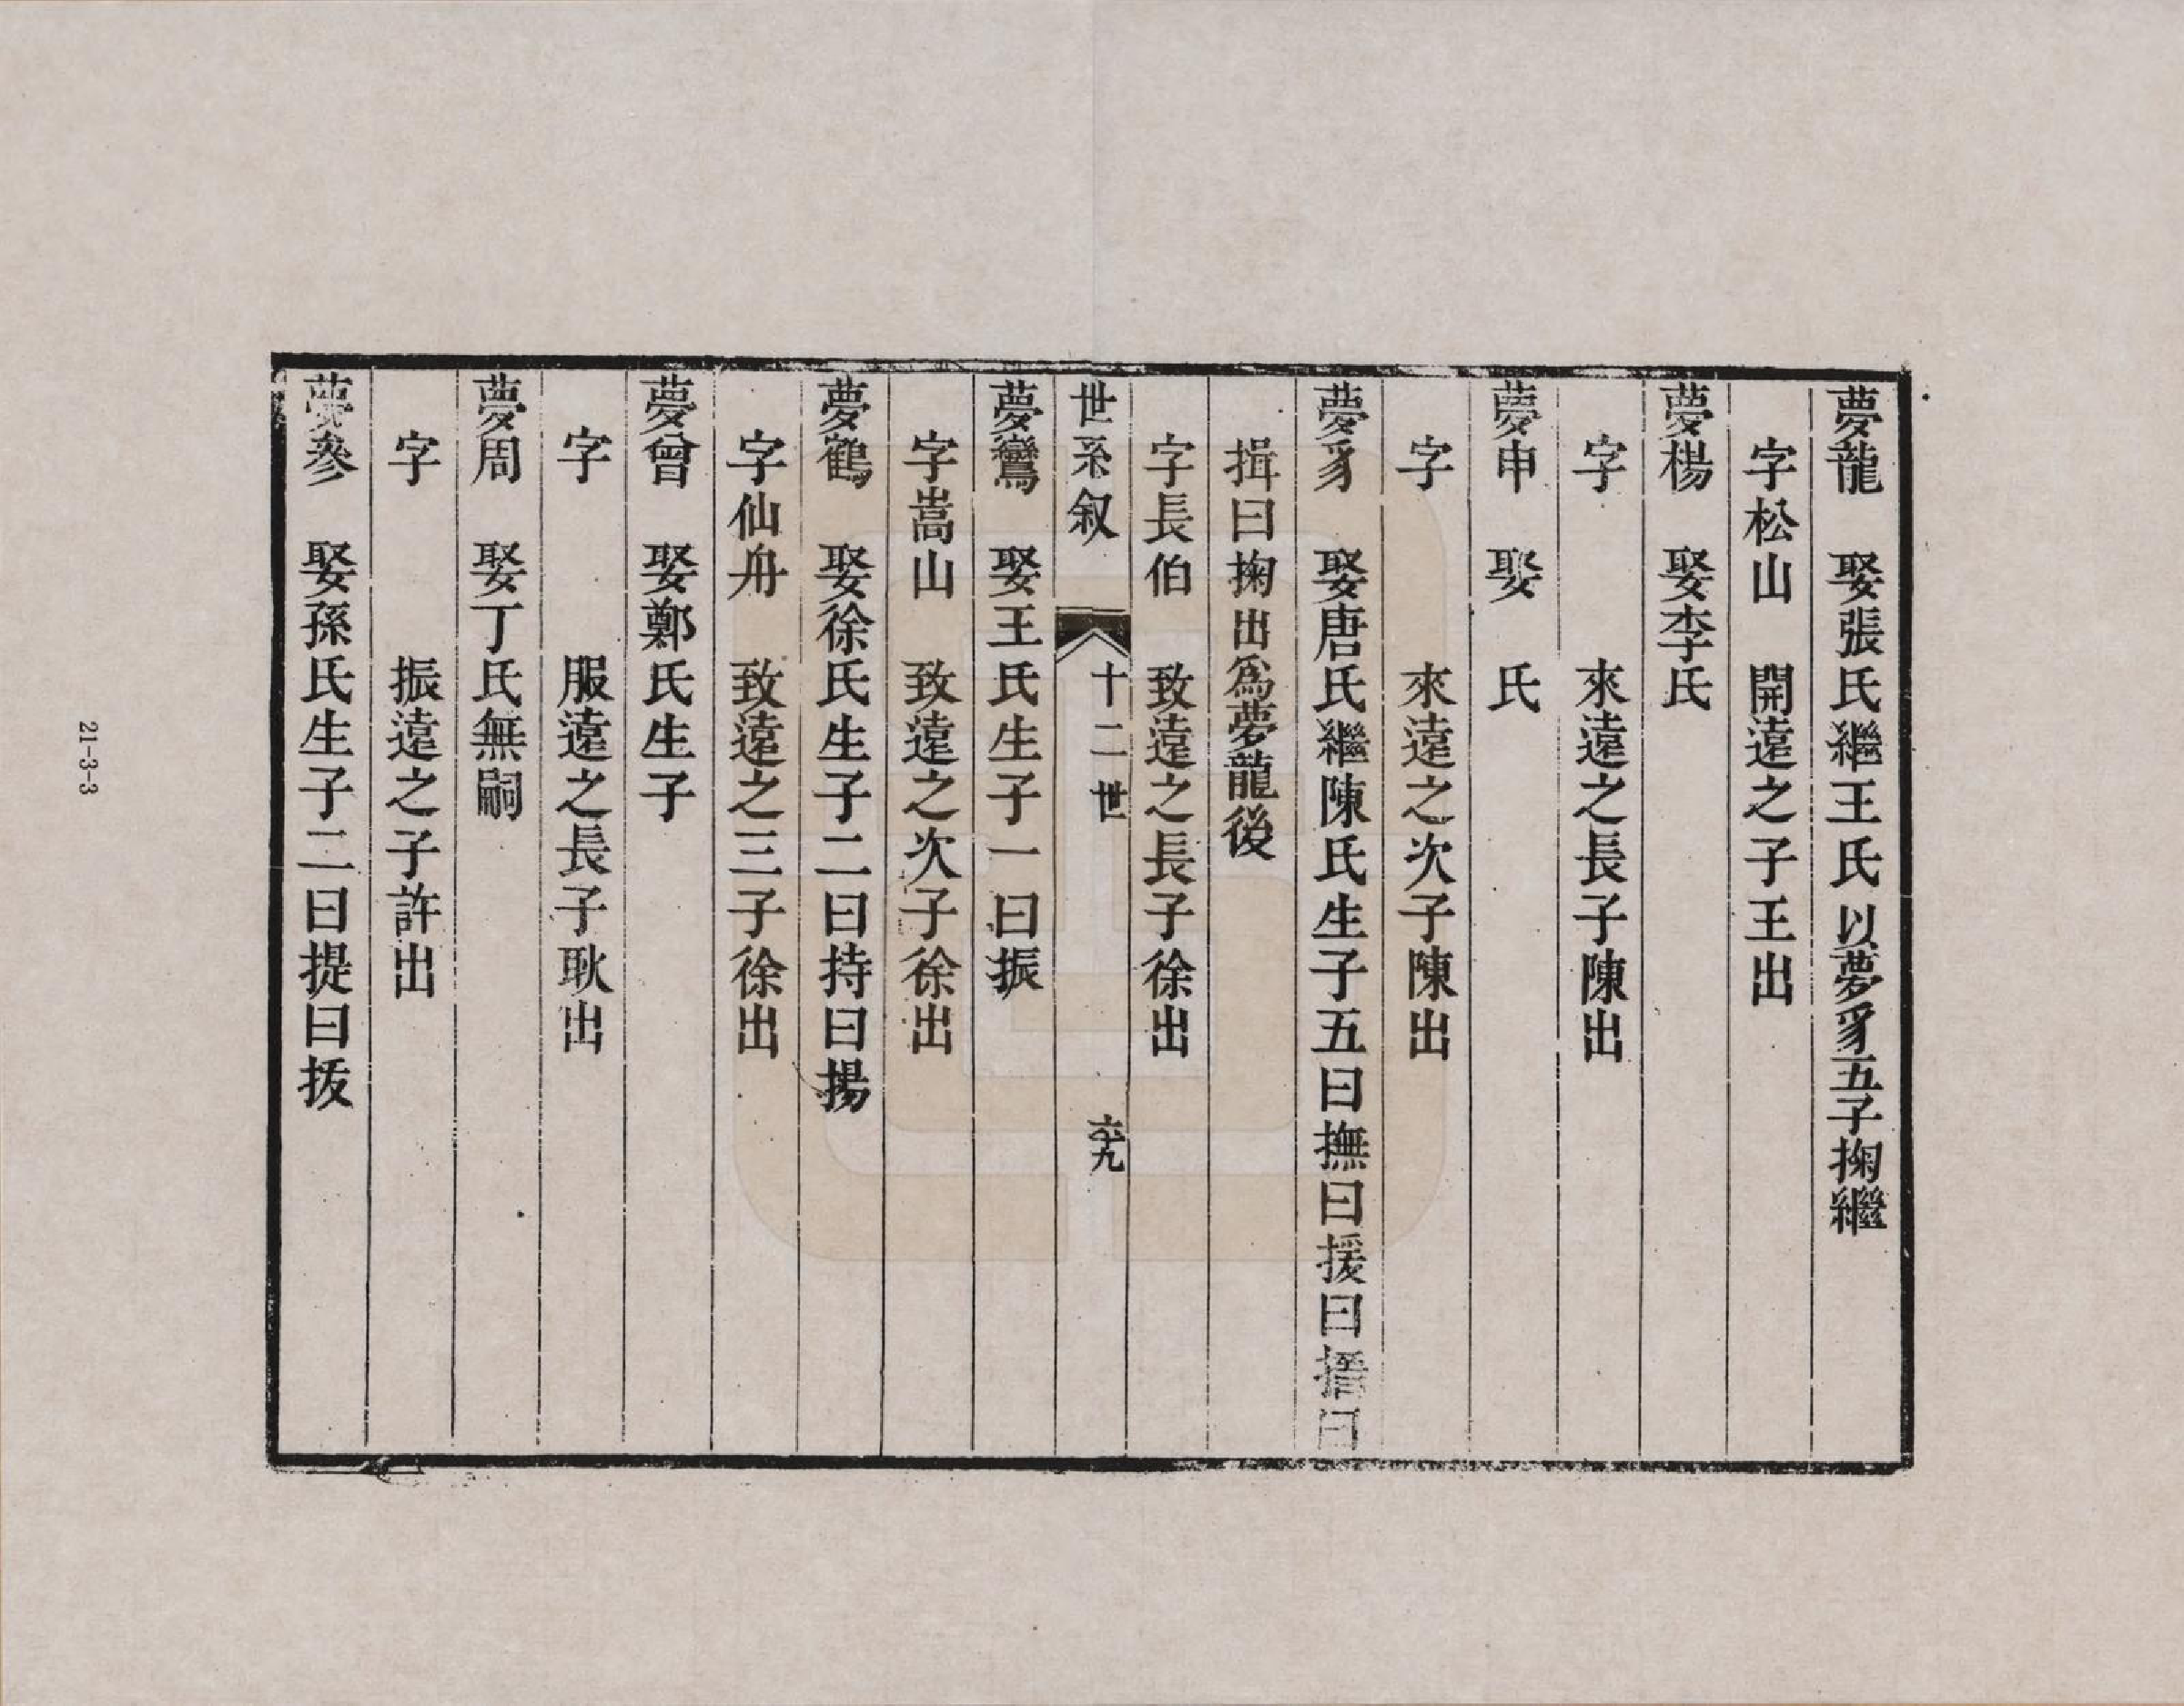 夢龍　娶張氏繼王氏以夢豸五子掬繼
字松山　開遠之子王出
夢楊　娶李氏
字　來遠之長子陳出
夢申　娶　氏
字　來遠之次子陳出
夢豸　娶唐氏繼陳氏生子五曰撫曰援曰搢曰
揖曰掬出為夢龍後
字長伯　致遠之長子徐出
世系叙　十二世　六十九
夢鸞　娶王氏生子一曰振
字嵩山　致遠之次子徐出
夢鶴　娶徐氏生子二曰持曰揚
字仙舟　致遠之三子徐出
夢曾　娶鄭氏生子
字　服遠之長子耿出
夢周　娶丁氏無嗣
字　振遠之子許出
夢參　娶孫氏生子二曰提曰拔
21-3-3